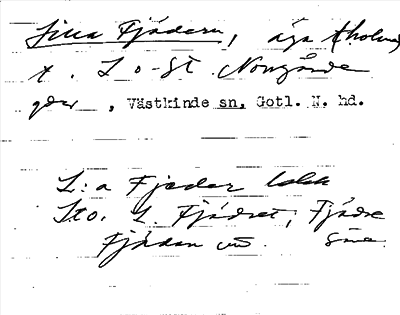 Lilla Fjädern, äga (holme)
t. L o-St. Norrgårde
gdar, Västkinde sn, Gotl. N. hd.
L:a Fjæder
Sto. L. Fjädret, Fjädre
Fjädan